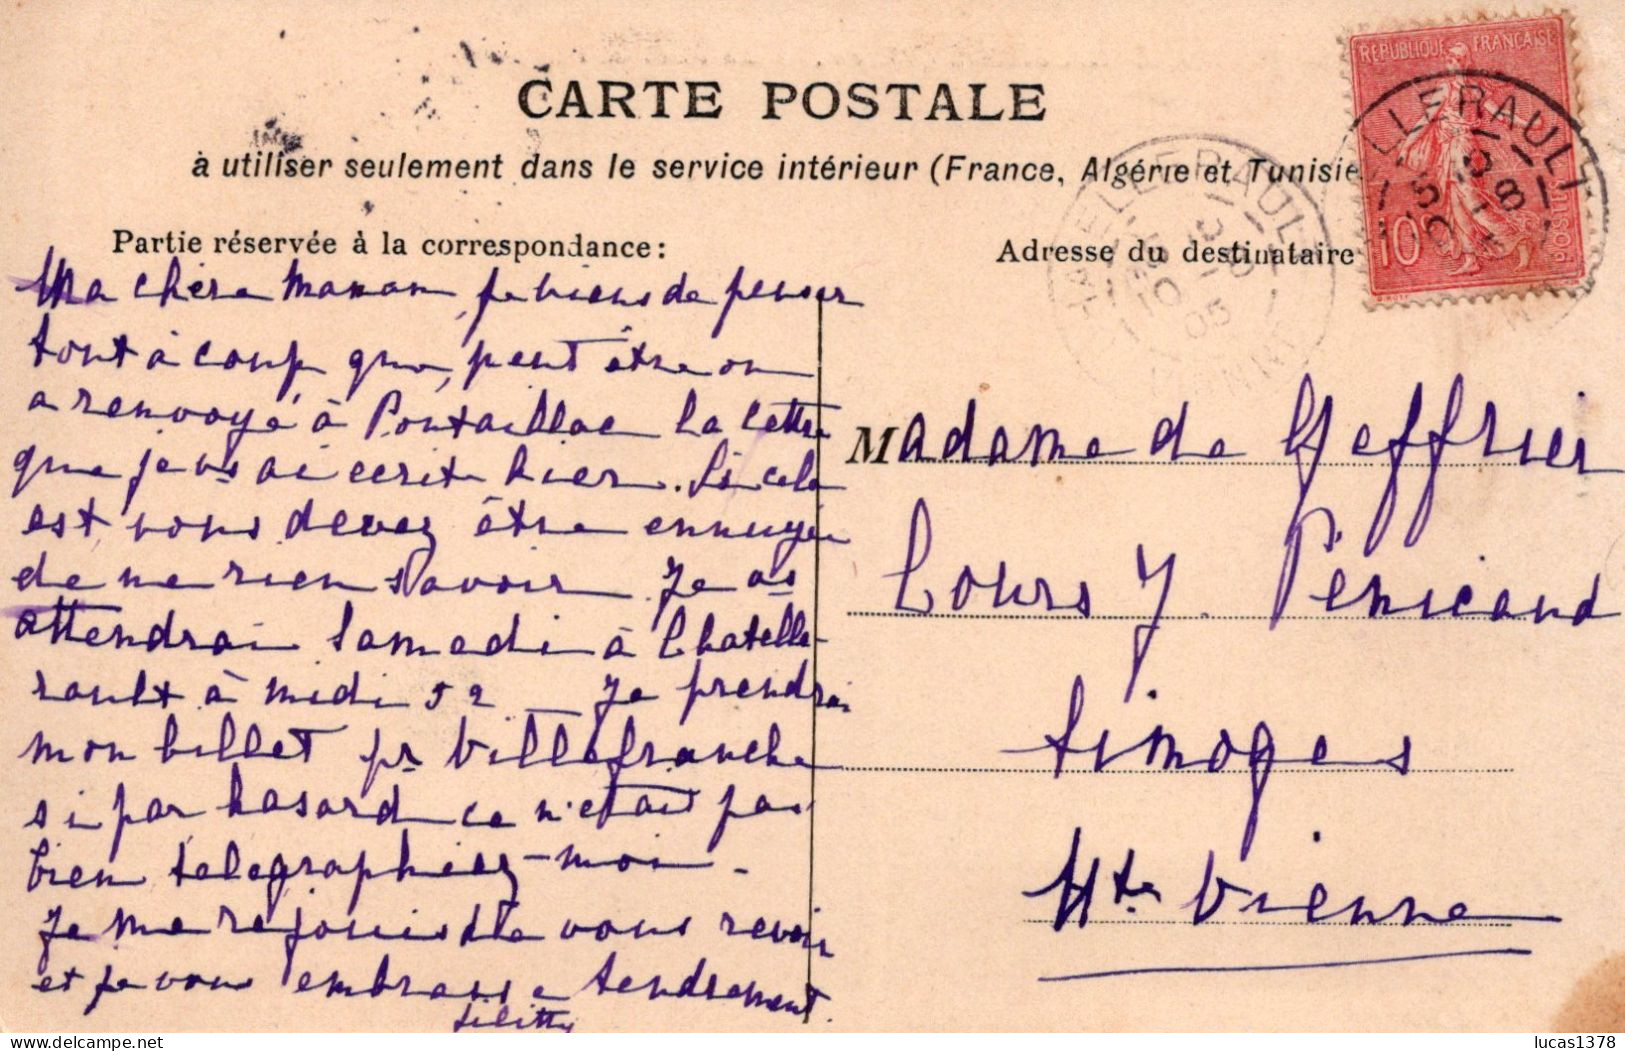 CARTE POSTALE
à utiliser seulement dans le service intérieur (France, Algérie et Tunisie
Partie réservée à la correspondance:
Ma chère Maman, je viens de penser
tout à coup que, peut être on
a renvoyé à Pontaillac la lettre
que je vs ai écrite hier. Si cela
est, vous devez être ennuyée
de ne rien savoir. Je vs
attendrai Samedi à Chatelle-
rault à midi 52 _ Je prendrai
mon billet pr Villefranche
si par hasard ce n'était pas
bien télégraphiez-moi -
Je me réjouis de vous revoir
et je vous embrasse tendrement.
Adresse du destinataire
Madame de Geffrier
Cours J. Pénicaud
Limoges
Hte Vienne
REPUBLIQUE FRANÇAISE
10
POSTES
CHATELLERAULT
VIENNE
lucas1378